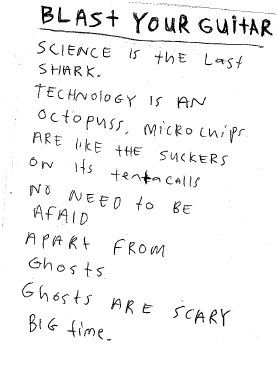 BLAST YOUR GUITAR
SCIENCE is the Last
SHARK.
TECHNOLOGY IS AN
OCTOPUSS. MICROCHIPS
ARE LIKE THE SUCKERS
ON its tentacalls
NO NEED to BE
AFAID
APART FROM
Ghosts
Ghosts ARE SCARY
BIG time.